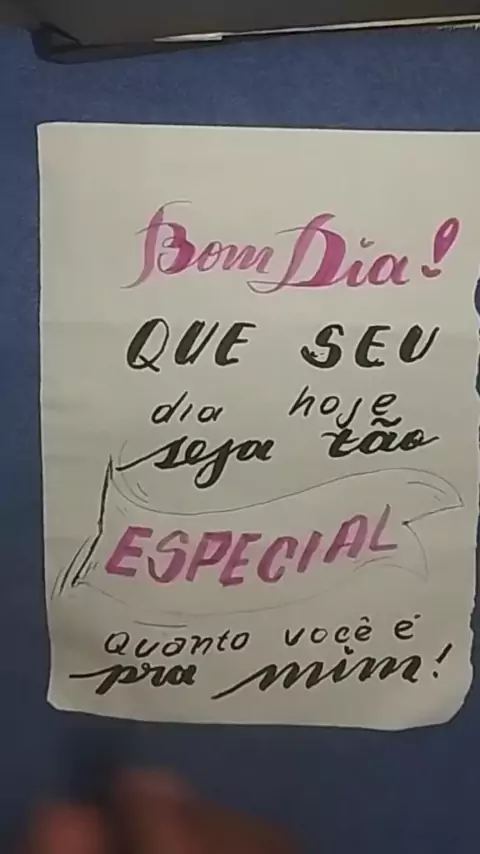 Bom Dia!
QUE SEU
dia hoje
seja tão
ESPECIAL
Quanto você é
pra mim!